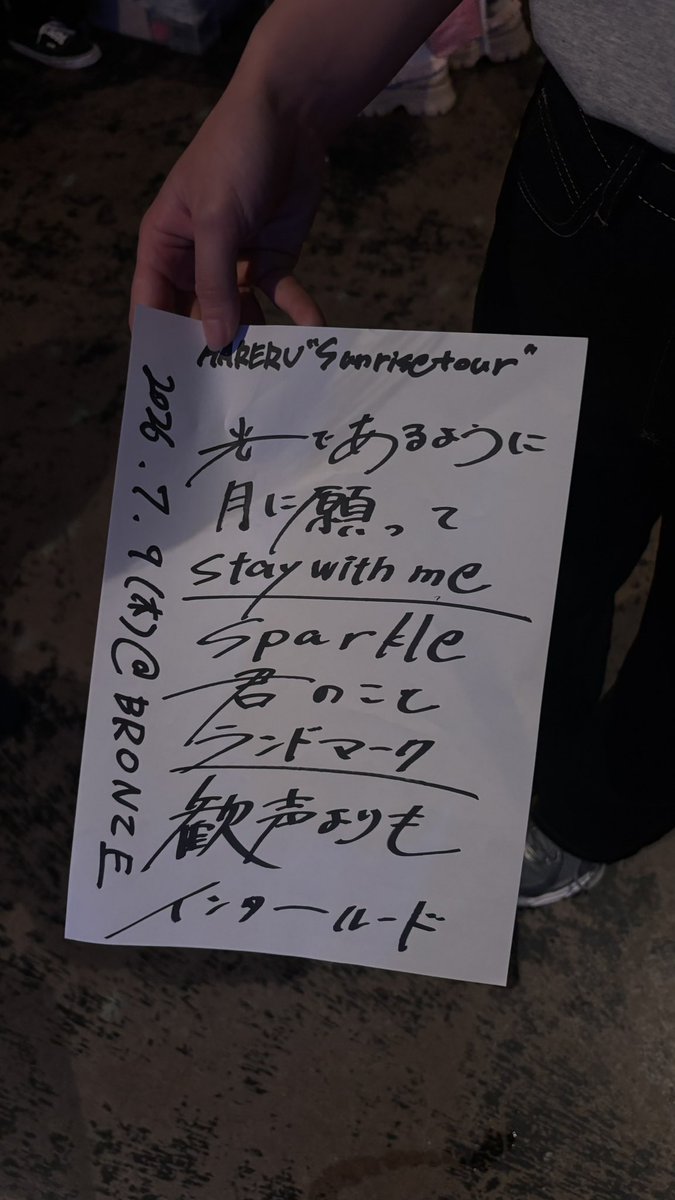 HARERU "Sunrise tour"
光であるように
月に願って
Stay with me
Sparkle
君のこと
ランドマーク
歓声よりも
インタールード
2026.7.9(木)@BRONZE